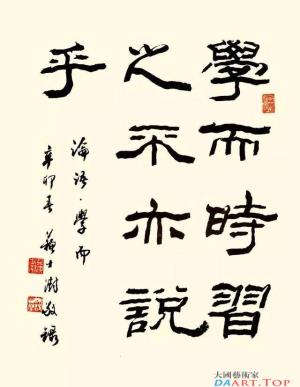 學而時習
之不亦說
乎
論語·學而
辛卯春 蘇士澍敬錄
大國藝術家
DAART.TOP